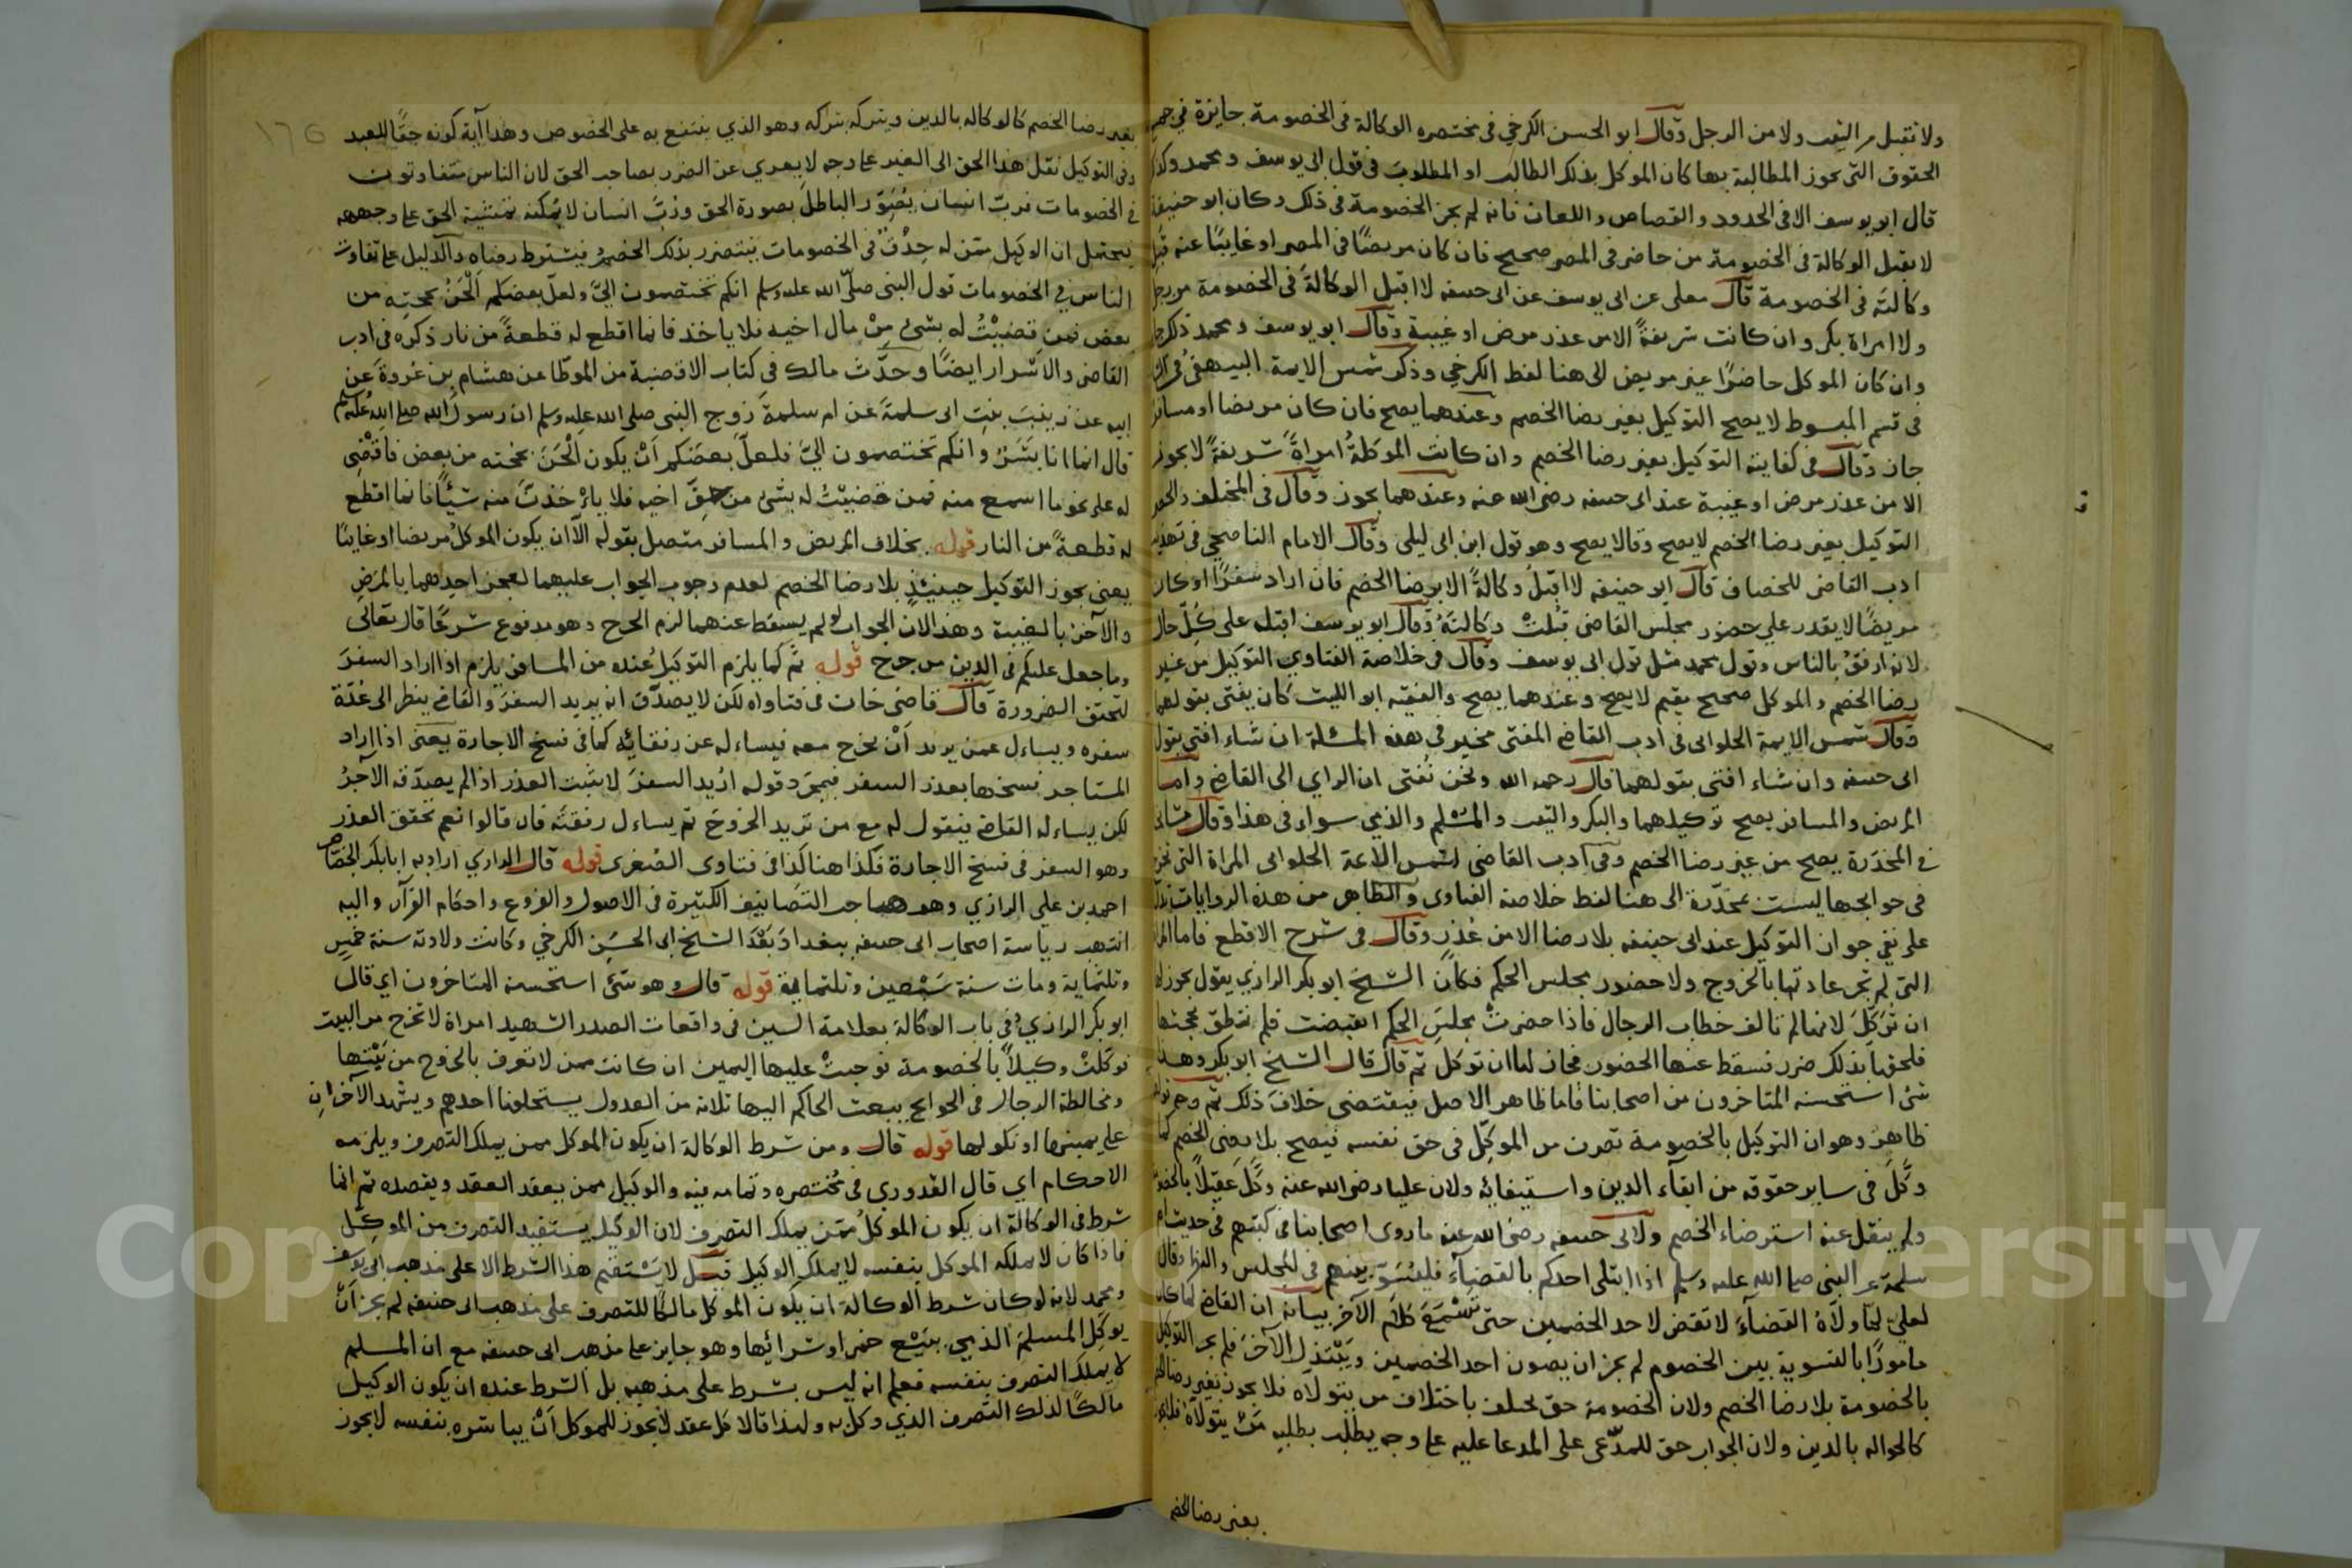 ولا تقبل من الثيب ولا من الرجل وقال ابو الحسن الكرخي في مختصره الوكالة في الخصومة جايزة في جميع
الحقوق التي تجوز المطالبة بها كان الموكل بذلك الطالب او المطلوب في قول ابي يوسف ومحمد وكذا
قال ابو يوسف الا في الحدود والقصاص واللعان فانه لم يجز الخصومة في ذلك وكان ابو حنيفة
لا يقبل الوكالة في الخصومة من حاضر في المصر صحيح فان كان مريضًا في المصر او غايبًا عنه قبل
وكالته في الخصومة قال معلى عن ابى يوسف عن ابى حنيفه لا اقبل الوكالة في الخصومة من رجل
ولا امراة بكر وان كانت شريفةً الا من عذر مرض او غيبة وقال ابو يوسف ومحمد
وان كان الموكل حاضرًا غير مريض الى هنا لفظ الكرخي وذكر شمس الايمة البيهقي في
في قسم المبسوط لا يصح التوكيل بغير رضا الخصم وعندهما يصح فان كان مريضا او مسافرا
جاز وقال في كفايته التوكيل بغير رضا الخصم وان كانت الموكلةُ امراةً شريفةً لا يجوز
الا من عذر مرض او غيبة عند ابى حنيفه رضى الله عنه وعندهما يجوز وقال في المختلف والحصر
التوكيل بغير رضا الخصم لا يصح وقالا يصح وهو قول ابن ابى ليلى وقال الامام الناصحي في تهذيب
ادب القاضى للخصاف قال ابو حنيفه لا اقبلُ وكالةً الا برضا الخصم فان اراد سفرًا او كان
مريضًا لا يقدر على حضور مجلس القاضى قبلت وكالتهُ وقال ابو يوسف اقبله على كلّ حال
لانه ارفقُ بالناس وقول محمد مثل قول ابى يوسف وقال في خلاصة الفتاوي التوكيل من غير
رضا الخصم والموكل صحيح مقيم لا يصح وعندهما يصح والفقيه ابو الليث كان يفتى بقولهما
وقال شمس الايمة الحلوانى في ادب القاضى المفتى مخير في هذه المسئلة ان شاء افتى بقول
ابى حنيفه وان شاء افتى بقولهما قال رحمه الله ونحن نُفتى ان الراي الى القاضى واما
المريض والمسافر يصح توكيلهما والبكر والثيب والمسْلم والذمي سواء في هذا وقال
في المخدّرة يصح من غير رضا الخصم وفي ادب القاضى لشمس الائمة الحلوانى المراة التى تخرج
في حوايجها ليست بمخدّرة الى هنا لفظ خلاصة الفتاوى والظاهر من هذه الروايات
على نفي جواز التوكيل عند ابى حنيفه بلا رضا الا من عُذرٍ وقال في شرح الاقطع فاما المراة
التى لم تجر عادتها بالخروج ولا حضور مجلس الحكم فكان الشيخ ابو بكر الرازي يقول يجوز لها
ان تُوكلَ لانها لم تالف خطاب الرجال فاذا حضرتْ مجلسَ الحكم انقبضت فلم تنطق بحجتها
فلحقها بذلك ضرر فسقط عنها الحضور فجاز لها ان توكل ثم قال قال الشيخ ابو بكر وهذا
شئ استحسنه المتاخرون من اصحابنا فاما ظاهر الاصل فيقتضى خلاف ذلك ثم وجه قولهما
ظاهرٌ وهو ان التوكيل بالخصومة تصرف من الموكّل في حق نفسه فيصح بلا رضى الخصم كما
وكَّلَ في ساير حقوقه من ايفآء الدين واستيفائه ولان عليا رضى الله عنه وكّلَ عقيلًا بالخصومة
ولم ينقل عنه استرضاء الخصم ولابى حنيفه رضى الله عنه ما روى اصحابنا في كتبهم في حديث ام
سلمة عن النبى صلى الله عليه وسلم اذا ابتلى احدكم بالقضاء فليُسَوِّ بينهم في المجلس والنظر وقال
لعليّ لمّا ولّاهُ القضآءَ لا تقض لاحد الخصمين حتى تسْمعَ كلام الآخر بيانه ان القاضى لما كان
مامورًا بالتسوية بين الخصوم لم يجز ان يصون احد الخصمين ويَبْتذل الآخرَ فلم يجز التوكيل
بالخصومة بلا رضا الخصم ولان الخصومة حق يختلف باختلاف من يتولاه فلا يجوز بغير رضا الخصم
كالحواله بالدين ولان الجواب حق للمدّعى على المدعا عليه على وجه يطلب بطلبه مَنْ يتولّاه فلا يجوز
بغير رضا الخصم
١٢٥
بغير رضا الخصم كالوكاله بالدين ويتركه بتركه وهو الذي ينتفع به على الخصوص وهذا آية كونه حقًا للعبد
وفي التوكيل نقل هذا الحق الى الغير على وجه لا يعرى عن الضرر بصاحب الحق لان الناس متفاوتون
في الخصومات فربّ انسان يُصَوِّر الباطل بصورة الحق وربّ انسان لا يمكنه تمشية الحق على وجهه
فيحتمل ان الوكيل ممن له حِذْقٌ في الخصومات فيتضرر بذلك الخصم فيشترط رضاه والدليل على تفاوت
الناس في الخصومات قول النبى صلى الله عليه وسلم انكم تختصمون اليّ ولعلّ بعضكم اَلْحَنُ بحجته من
بعض فمن قضيْتُ له بشئ مِنْ مال اخيه فلا ياخذ فانما اقطع له قطعةً من نار ذكره في ادب
القاضى والاشرار ايضًا وحدَّث مالك في كتاب الاقضية من الموطّا عن هشام بن عُروةَ عن
ابيه عن زينبَ بنتِ ابى سلمةَ عن ام سلمةَ زوج النبى صلى الله عليه وسلم ان رسول الله صلى الله عليه وسلم
قال انما انا بشَرٌ وانكم تختصمون اليَّ فلعلّ بعضَكم اَنْ يكون اَلْحَنَ بحجته من بعض فاقضى
له على نحو ما اسمع منه فمن قضيْتُ له بشئ من حقّ اخيه فلا ياْخذنّ منه شيْئًا فانما اقطع
له قطعةً من النار قوله بخلاف المريض والمسافر متصل بقوله الّا ان يكون الموكلُ مريضا او غايبًا
يعنى يجوز التوكيل حينئذٍ بلا رضا الخصم لعدم وجوب الجواب عليهما لعجز احدهما بالمرض
والآخر بالغيبة وهذا لان الجواب لو لم يسقط عنهما لزم الحرج وهو مدفوع شرعًا قال تعالى
وما جعل عليكم في الدين من حرج قوله ثم كما يلزم التوكيلُ عنده من المسافر يلزم اذا اراد السفر
لتحقق الضرورة قال قاضى خان في فتاواه لكن لا يصدّق انه يريد السفرَ والقاضى ينظر الى عُدّة
سفره ويساءل عمن يريد اَنْ يخرج معه فيساءله عن رفقائه كما في فسخ الاجارة يعنى اذا اراد
المستاجر فسخها بعذر السفر فبمجرّد قوله ازُيد السفرَ لا يثبت العذر اذا لم يصدّقه الآجرُ
لكن يساءله القاضى فيقول له مع من تريد الخروجَ ثم يساءل رفقتَه فان قالوا نعم تحقق العذر
وهو السفر في فسخ الاجارة فكذا هنا كذا في فتاوى الصُغرى قوله قال الرازي اراد به ابا بكر الجصّاص
احمد بن على الرازي وهو صاحب التصانيف الكثيرة في الاصول والفروع واحكام القرآن واليه
انتهت رياسة اصحاب ابى حنيفه ببغدادَ بَعْدَ الشيخ ابى الحسَن الكرخي وكانت ولادته سنة خمسٍ
وثلثماية ومات سنة سَبْعين وثلثماية قوله قال وهو شئ استحسنه المتاخرون اي قال
ابو بكر الرازي وفي باب الوكالة بعلامة السين في واقعات الصدر الشهيد امراة لا تخرج من البيت
توكلتْ وكيلًا بالخصومة فوجبتْ عليها اليمين ان كانت ممن لا تعرف بالخروج من بَيْتها
ومخالطة الرجال في الحوايج يبعث الحاكم اليها ثلاثة من العدول يستحلفها احدهم ويشهد الآخرانِ
على يمينها او نكولها قوله قال ومن شرط الوكالة ان يكون الموكل ممن يملك التصرف ويلزمه
الاحكام اي قال القدوري في مُختصره وتمامه فيه والوكيل ممن يعقد العقد ويقصده ثم انما
شرط في الوكالة ان يكون الموكلُ مِمّن يملك التصرف لان الوكيل يستفيد التصرف من الموكِّل
فاذا كان لا يملكه الموكل بنفسه لا يملكه الوكيل قيل لا يسْتقيم هذا الشرط الا على مذهب ابى يوسف
ومحمد لانه لو كان شرط الوكالة ان يكون الموكل مالكًا للتصرف على مذهب ابى حنيفه لم يجز اَنْ
يوكل المسلمُ الذمي ببَيْع خمر او شرائها وهو جايز على مذهب ابى حنيفه مع ان المسلم
لا يملك التصرف بنفسه فعلم انه ليس بشرط على مذهبه بل الشرط عنده ان يكون الوكيل
مالكًا لذلك التصرف الذي وكل به ولهذا قالا كل عقد لا يجوز للموكل اَنْ يباشره بنفسه لا يجوز
Copyright © King Saud University